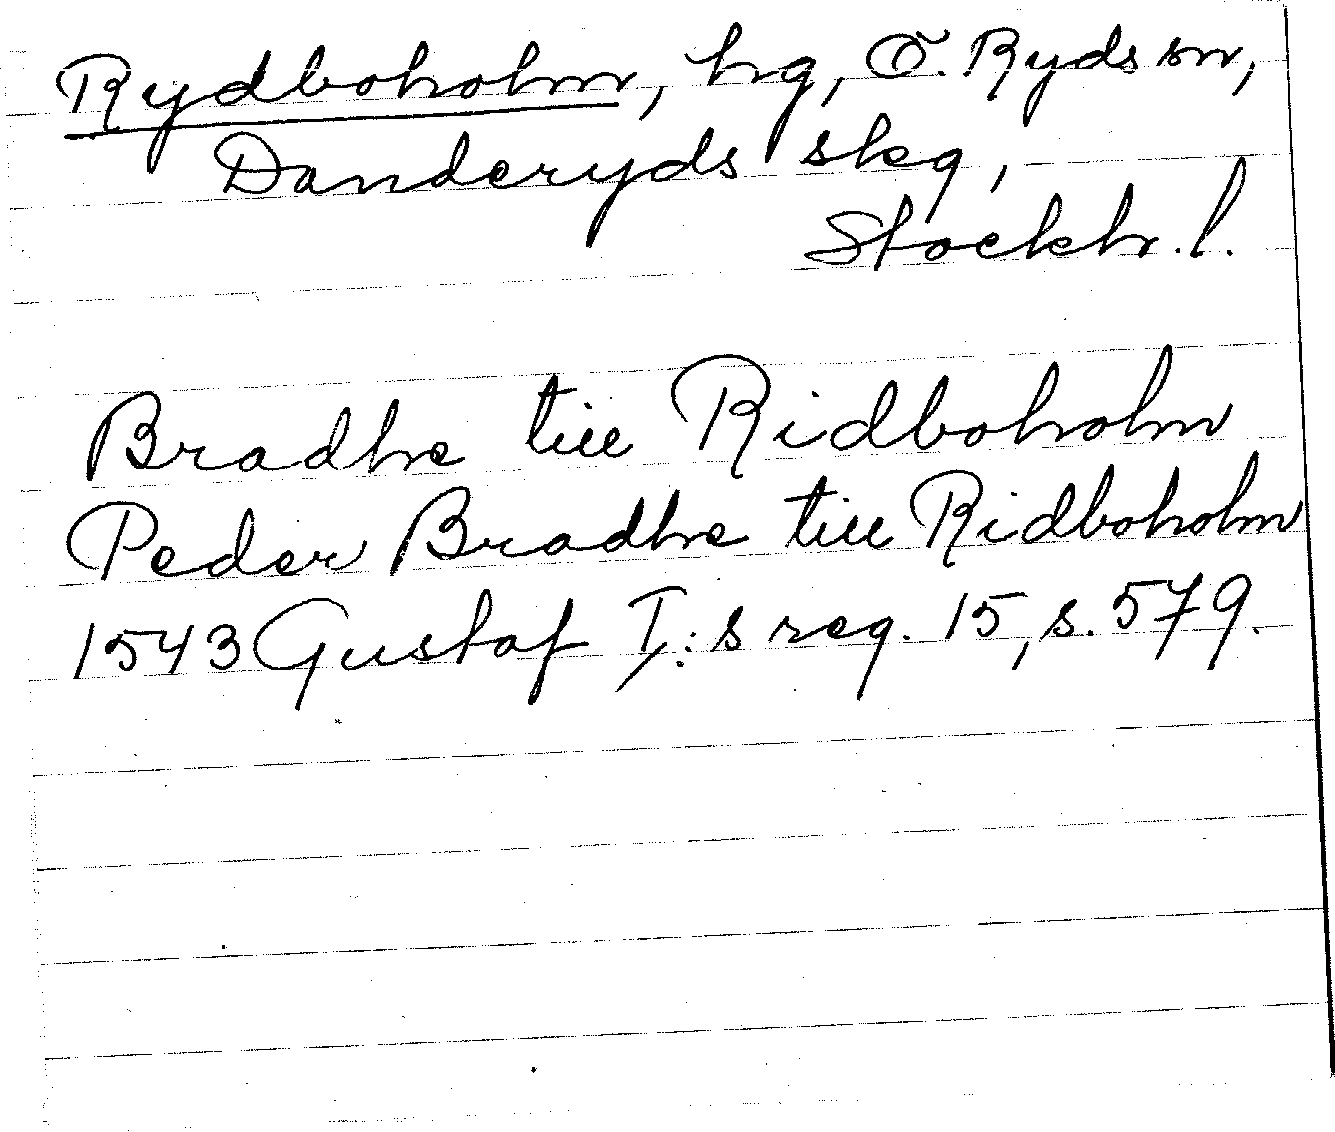 Rydboholm, hg, Ö. Ryds sn,
Danderyds skg,
Stockh. l.
Bradhe till Ridboholm
Peder Bradhe till Ridboholm
1543 Gustaf I:s reg. 15, s. 579.